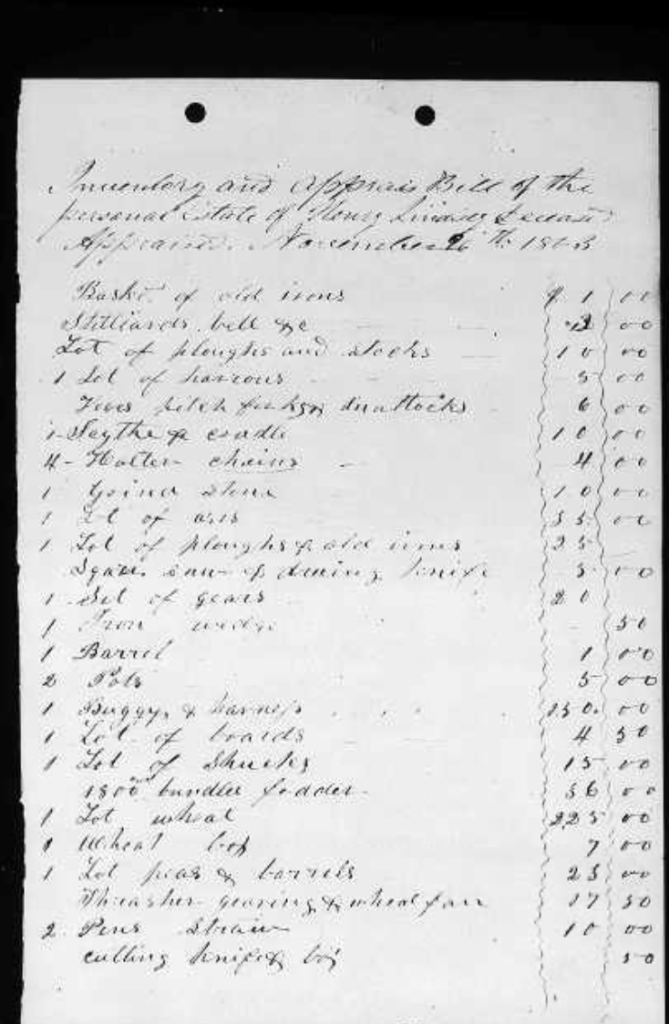 Inventory and Apprais Bill of the
personal Estate of Henry Lindsey Deceased
Appraised November 26th 1863
Basket of old irons $ 1 00
Stilliards bell &c 3 00
Lot of ploughs and stocks 10 00
1 Lot of harrows 5 00
Hoes pitch forks & mattocks 6 00
1 Scythe & cradle 10 00
4 Halter chains 4 00
1 Grind stone 10 00
1 Lot of axes 35 00
1 Lot of ploughs & old irons 25
saw & drawing knife 5 00
1 Set of gears 20
1 Iron wedge 50
1 Barrel 1 00
2 Pots 5 00
1 Buggy & harness 150 00
1 Lot of boards 4 50
1 Lot of Shucks 15 00
1800 bundles fodder 36 00
1 Lot wheat 225 00
1 Wheat box 7 00
1 Lot peas & barrels 25 00
Thrasher gearing & wheat fan 17 50
2 Pens Straw 10 00
cutting knife & box 50